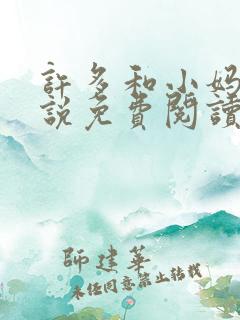 許多和小妈
説免費閱讀
師建華
未经同意禁止转载